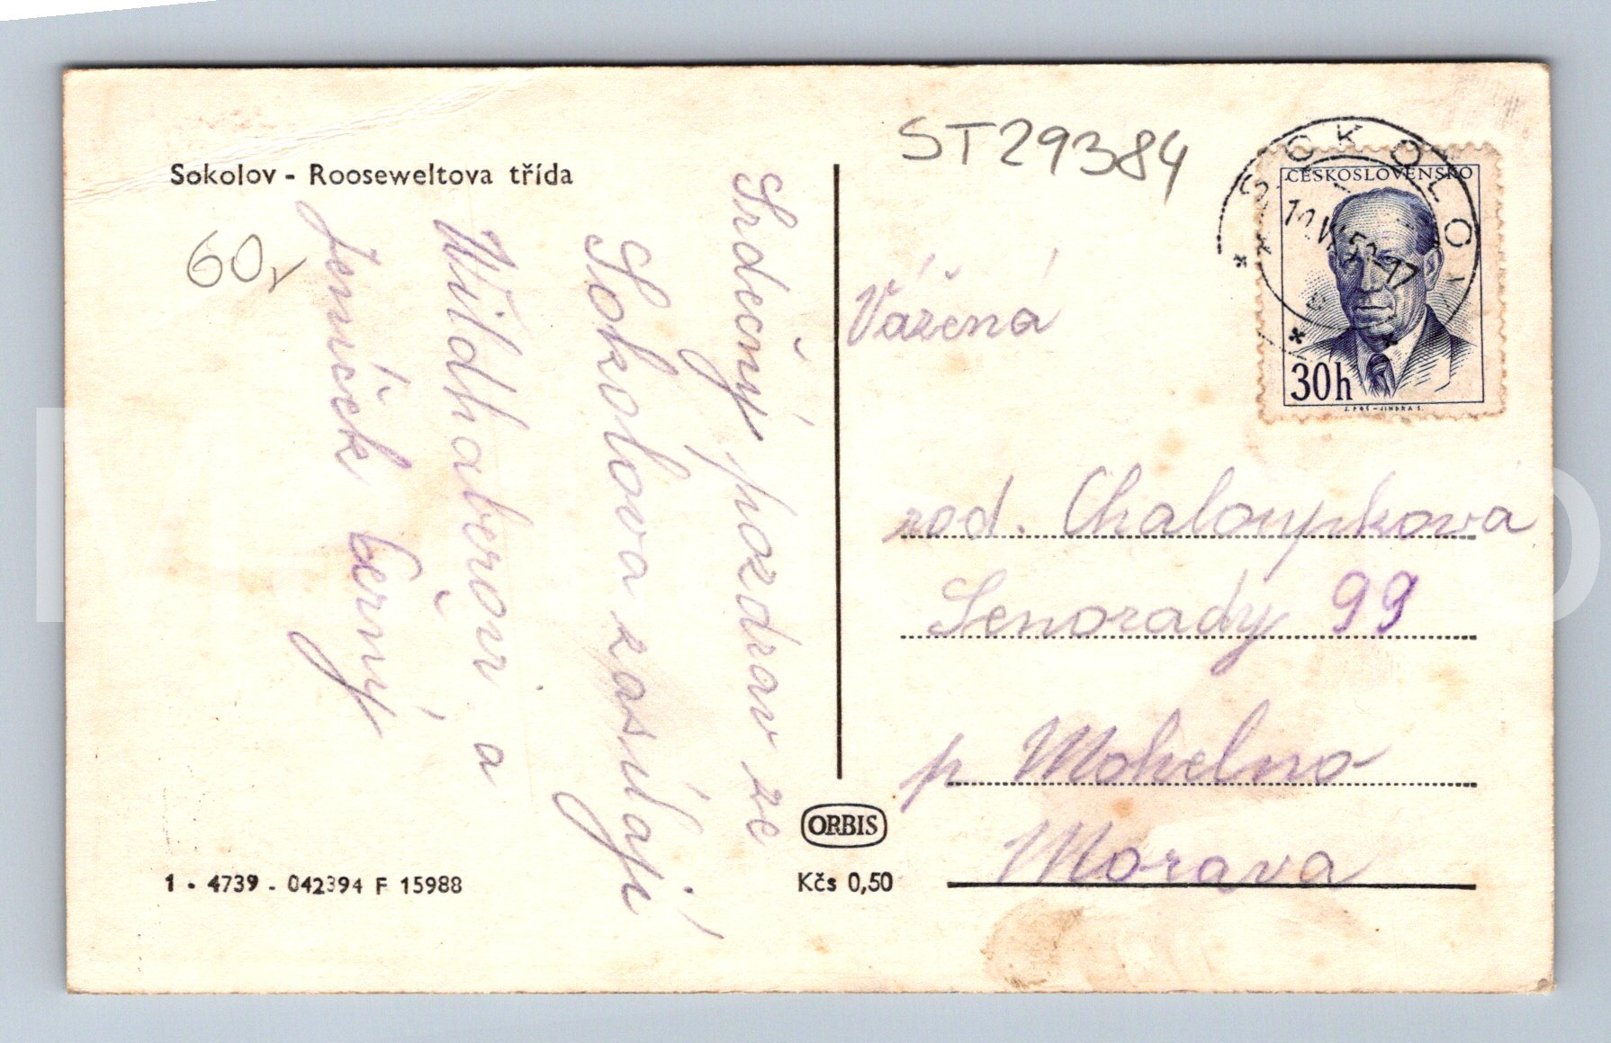 Sokolov - Rooseweltova třída
60,-
Srdečný pozdrav ze
Sokolova zasílají
Wildhaberovi a
Jeníček Černý
1 - 4739 - 042394 F 15988
ST29384
SOKOLOV
ČESKOSLOVENSKO
30h
Vážená
rod. Chaloupkova
Senorady 99
p Mohelno
Morava
ORBIS
Kčs 0,50